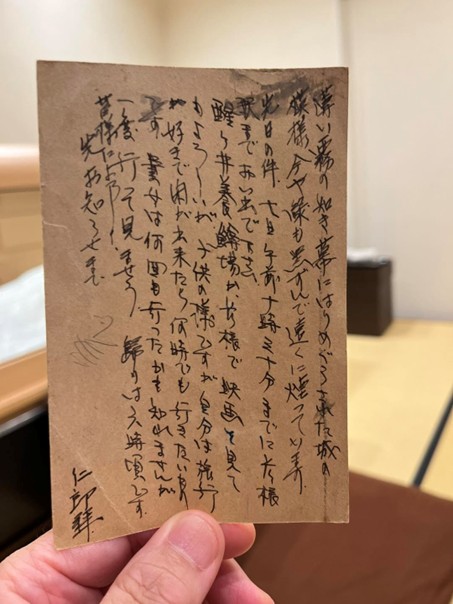 薄い霧の如き幕にはりめぐらされた城の
模様 今や緑も黒ずんで遠くに煙っています
先日の件 七日午前十時三十分までに
までお出で下さい
醒ヶ井養鱒場か 様で映画を見て
もよろしいが 子供の様ですが自分は旅行
が好きで閑が出来たら何時でも行きたいの
です 養父は何回も行ったかも知れませんが
一度行って見ませう 帰りは六時頃です
皆様によろしく
先お知らせまで
仁郎拝